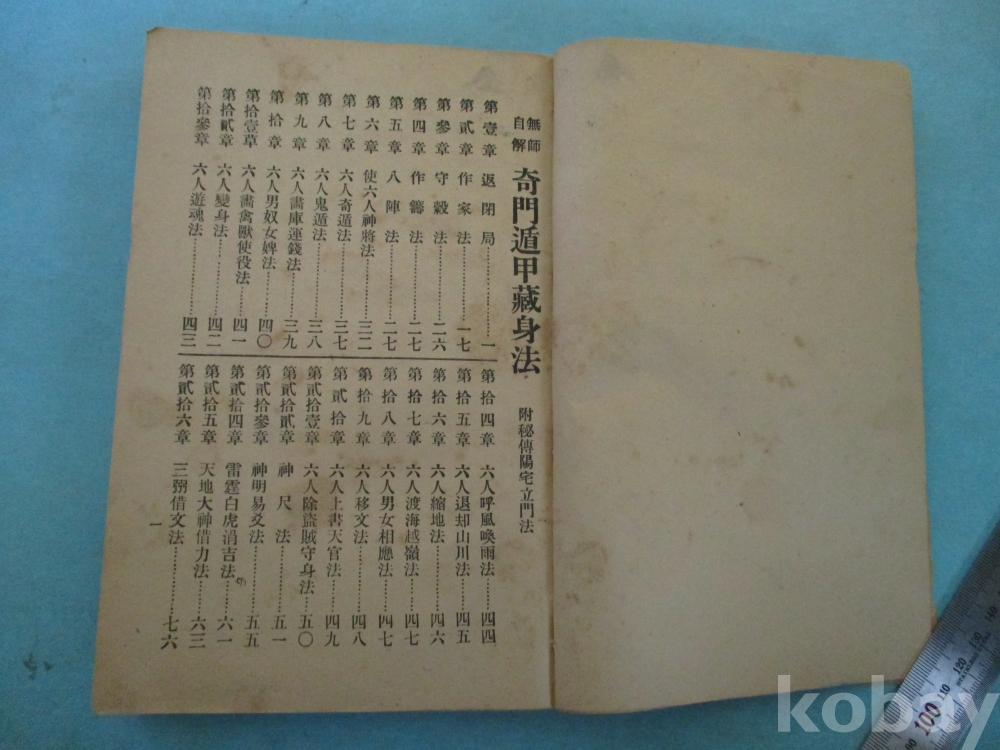 無師自解 奇門遁甲藏身法 附秘傳陽宅立門法
第壹章 返閉局…………一
第貳章 作家法…………一七
第參章 守縠法…………二六
第四章 作籌法…………二七
第五章 八陣法…………二七
第六章 使六人神將法…………三二
第七章 六人奇遁法…………三七
第八章 六人鬼遁法…………三八
第九章 六人畵庫運錢法…………三九
第拾章 六人男奴女婢法…………四〇
第拾壹草 六人畵禽獸使役法…………四一
第拾貳章 六人變身法…………四二
第拾參章 六人遊魂法…………四三
第拾四章 六人呼風喚雨法…………四四
第拾五章 六人退却山川法…………四五
第拾六章 六人縮地法…………四六
第拾七章 六人渡海越嶺法…………四七
第拾八章 六人男女相應法…………四七
第拾九章 六人移文法…………四八
第貳拾章 六人上書天官法…………四九
第貳拾壹章 六人除盜賊守身法…………五〇
第貳拾貳章 神尺法…………五一
第貳拾參章 神明易爻法…………五五
第貳拾四章 雷霆白虎涓吉法…………六一
第貳拾五章 天地大神借力法…………六三
第貳拾六章 三弼借文法…………七六
一
kobay
100
110
120
130
140